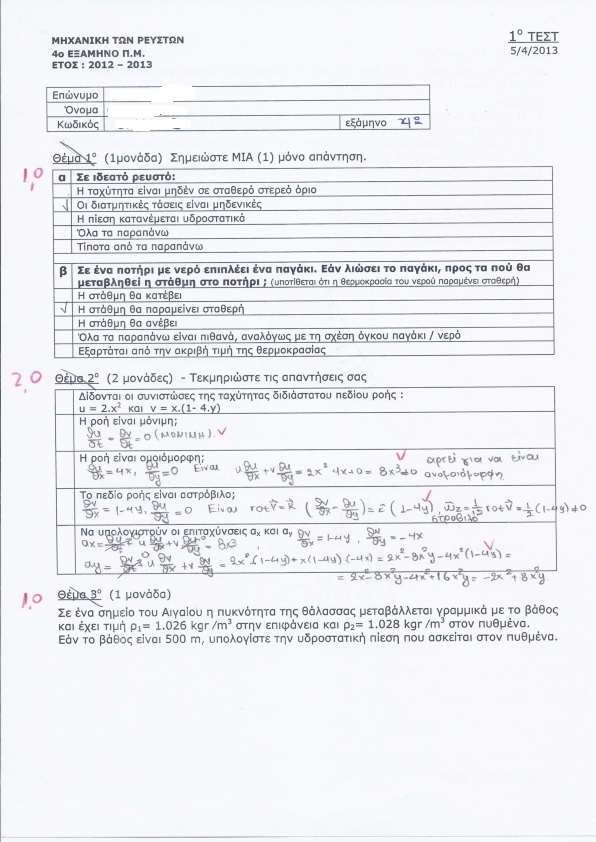 ΜΗΧΑΝΙΚΗ ΤΩΝ ΡΕΥΣΤΩΝ
1º ΤΕΣΤ
4ο ΕΞΑΜΗΝΟ Π.Μ.
5/4/2013
ΕΤΟΣ : 2012 – 2013
Επώνυμο
Όνομα
Κωδικός εξάμηνο
1,0
Θέμα 1º (1μονάδα) Σημειώστε ΜΙΑ (1) μόνο απάντηση.
α Σε ιδεατό ρευστό:
Η ταχύτητα είναι μηδέν σε σταθερό στερεό όριο
√ Οι διατμητικές τάσεις είναι μηδενικές
Η πίεση κατανέμεται υδροστατικά
Όλα τα παραπάνω
Τίποτα από τα παραπάνω
β Σε ένα ποτήρι με νερό επιπλέει ένα παγάκι. Εάν λιώσει το παγάκι, προς τα πού θα
μεταβληθεί η στάθμη στο ποτήρι ; (υποτίθεται ότι η θερμοκρασία του νερού παραμένει σταθερή)
Η στάθμη θα κατέβει
√ Η στάθμη θα παραμείνει σταθερή
Η στάθμη θα ανέβει
Όλα τα παραπάνω είναι πιθανά, αναλόγως με τη σχέση όγκου παγάκι / νερό
Εξαρτάται από την ακριβή τιμή της θερμοκρασίας
2,0
Θέμα 2º (2 μονάδες) - Τεκμηριώστε τις απαντήσεις σας
Δίδονται οι συνιστώσες της ταχύτητας διδιάστατου πεδίου ροής :
u = 2.x² και v = x.(1- 4.y)
Η ροή είναι μόνιμη;
∂u/∂t = ∂v/∂t = 0 (ΜΟΝΙΜΗ)
Η ροή είναι ομοιόμορφη;
∂u/∂x = 4x, ∂u/∂y = 0 Είναι u ∂u/∂x + v ∂u/∂y = 2x² 4x+0 = 8x³ ≠ 0 αρκεί για να είναι
ανομοιόμορφη
Το πεδίο ροής είναι αστρόβιλο;
∂v/∂x = 1-4y, ∂u/∂y = 0 Είναι rotV = k (∂v/∂x - ∂u/∂y) = (1-4y), ω̄z = 1/2 rotV = 1/2 (1-4y) ≠ 0
στροβιλό
Να υπολογιστούν οι επιταχύνσεις αx και αy ∂v/∂x = 1-4y, ∂v/∂y = -4x
ax = ∂u/∂t + u ∂u/∂x + v ∂u/∂y = 8x³
ay = ∂v/∂t + u ∂v/∂x + v ∂v/∂y = 2x² (1-4y) + x(1-4y) (-4x) = 2x² - 8x²y - 4x² (1-4y) =
= 2x² - 8x²y - 4x² + 16x²y = -2x² + 8x²y
1,0
Θέμα 3º (1 μονάδα)
Σε ένα σημείο του Αιγαίου η πυκνότητα της θάλασσας μεταβάλλεται γραμμικά με το βάθος
και έχει τιμή ρ₁= 1.026 kgr /m³ στην επιφάνεια και ρ₂= 1.028 kgr /m³ στον πυθμένα.
Εάν το βάθος είναι 500 m, υπολογίστε την υδροστατική πίεση που ασκείται στον πυθμένα.